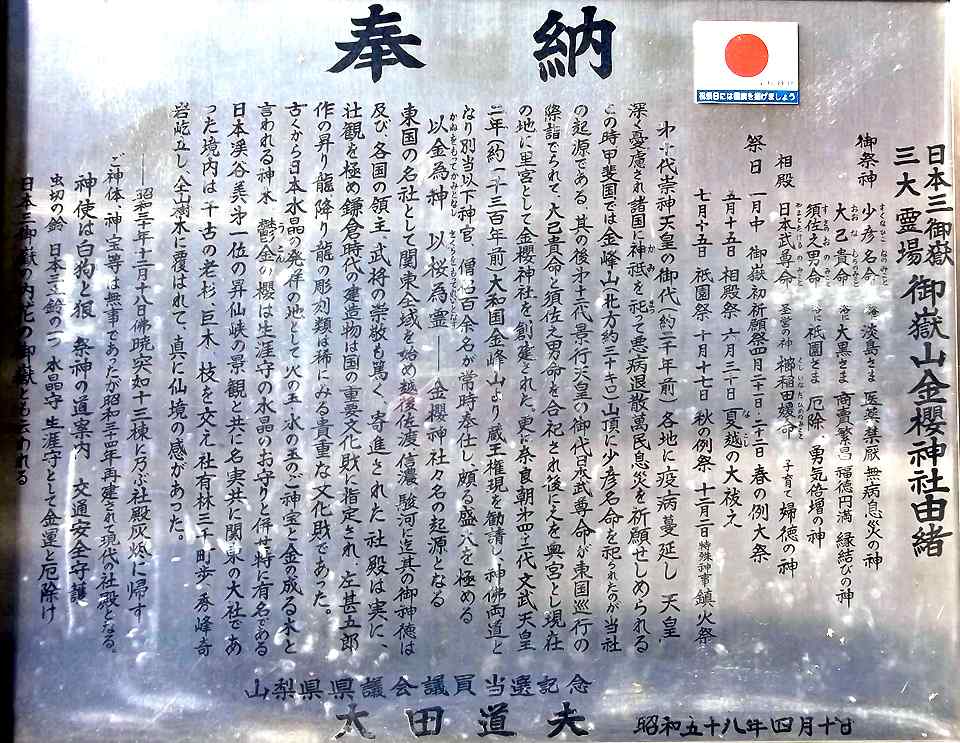 奉納
祝祭日には国旗を掲げましょう
日本三御嶽
三大霊場 御嶽山金櫻神社由緒
御祭神 少彦名命 俗に淡島さま 医薬、禁厭、無病息災の神
大己貴命 俗に大黒さま 商売繁昌、福徳円満、縁結びの神
須佐之男命 俗に祇園さま 厄除、勇気倍増の神
相殿 日本武尊命 櫛稲田媛命 子育て 婦徳の神
祭日 一月中 御嶽初祈願祭 四月二十日・二十二日 春の例大祭
五月十五日 相殿祭 六月三十日 夏越の大祓え
七月十五日 祇園祭 十月十七日 秋の例祭 十二月二日 特殊神事 鎮火祭
第十代崇神天皇の御代(約二千年前)各地に疫病蔓延し、天皇
深く憂慮され諸国に神祇を祀って悪病退散、萬民息災を祈願せしめられる
この時甲斐国では金峰山(北方約三十キロ)山頂に少彦名命を祀られたのが当社
の起源である、其の後第十二代景行天皇の御代日本武尊命が東国巡行の
際詣でられて、大己貴命と須佐之男命を合祀され後に之を奥宮とし現在
の地に里宮として金櫻神社を創建された。更に奈良朝第四十二代文武天皇
二年(約一千三百年前)大和国金峰山より蔵王権現を勧請し、神佛両道と
なり別当以下神官、僧侶百余名が常時奉仕し頗る盛大を極める
以金為神 以桜為霊 ―― 金櫻神社々名の起源となる
東国の名社として関東全域を始め越後、佐渡、信濃、駿河に迄其の御神徳は
及び各国の領主、武将の崇敬も篤く、寄進された社殿は実に、
壮観を極め鎌倉時代の建造物は国の重要文化財に指定され、左甚五郎
作の昇り龍、降り龍の彫刻類は稀にみる貴重な文化財であった。
古くから日本水晶の発祥の地として火の玉・水の玉のご神宝と金の成る木と
言われる神木、鬱金の櫻は生涯守の水晶のお守りと併せ特に有名である
日本渓谷美第一位の昇仙峡の景観と共に名実共に関東の大社であ
った境内は千古の老杉、巨木、枝を交え社有林三千町歩、秀峰奇
岩屹立し、全山樹木に覆はれて、真に仙境の感があった。
――昭和三十年十二月十八日佛暁突如十三棟に及ぶ社殿灰燼に帰す
ご神体、神宝等は無事であったが昭和三十四年再建されて現代の社殿となる。
神使は白狗と狼 祭神の道案内 交通安全守護
虫切の鈴 日本三霊鈴の一つ 水晶守 生涯守として金運と厄除け
日本三御嶽の内花の御嶽とも云われる
山梨県県議会議員当選記念
太田道夫
昭和五十八年四月十日